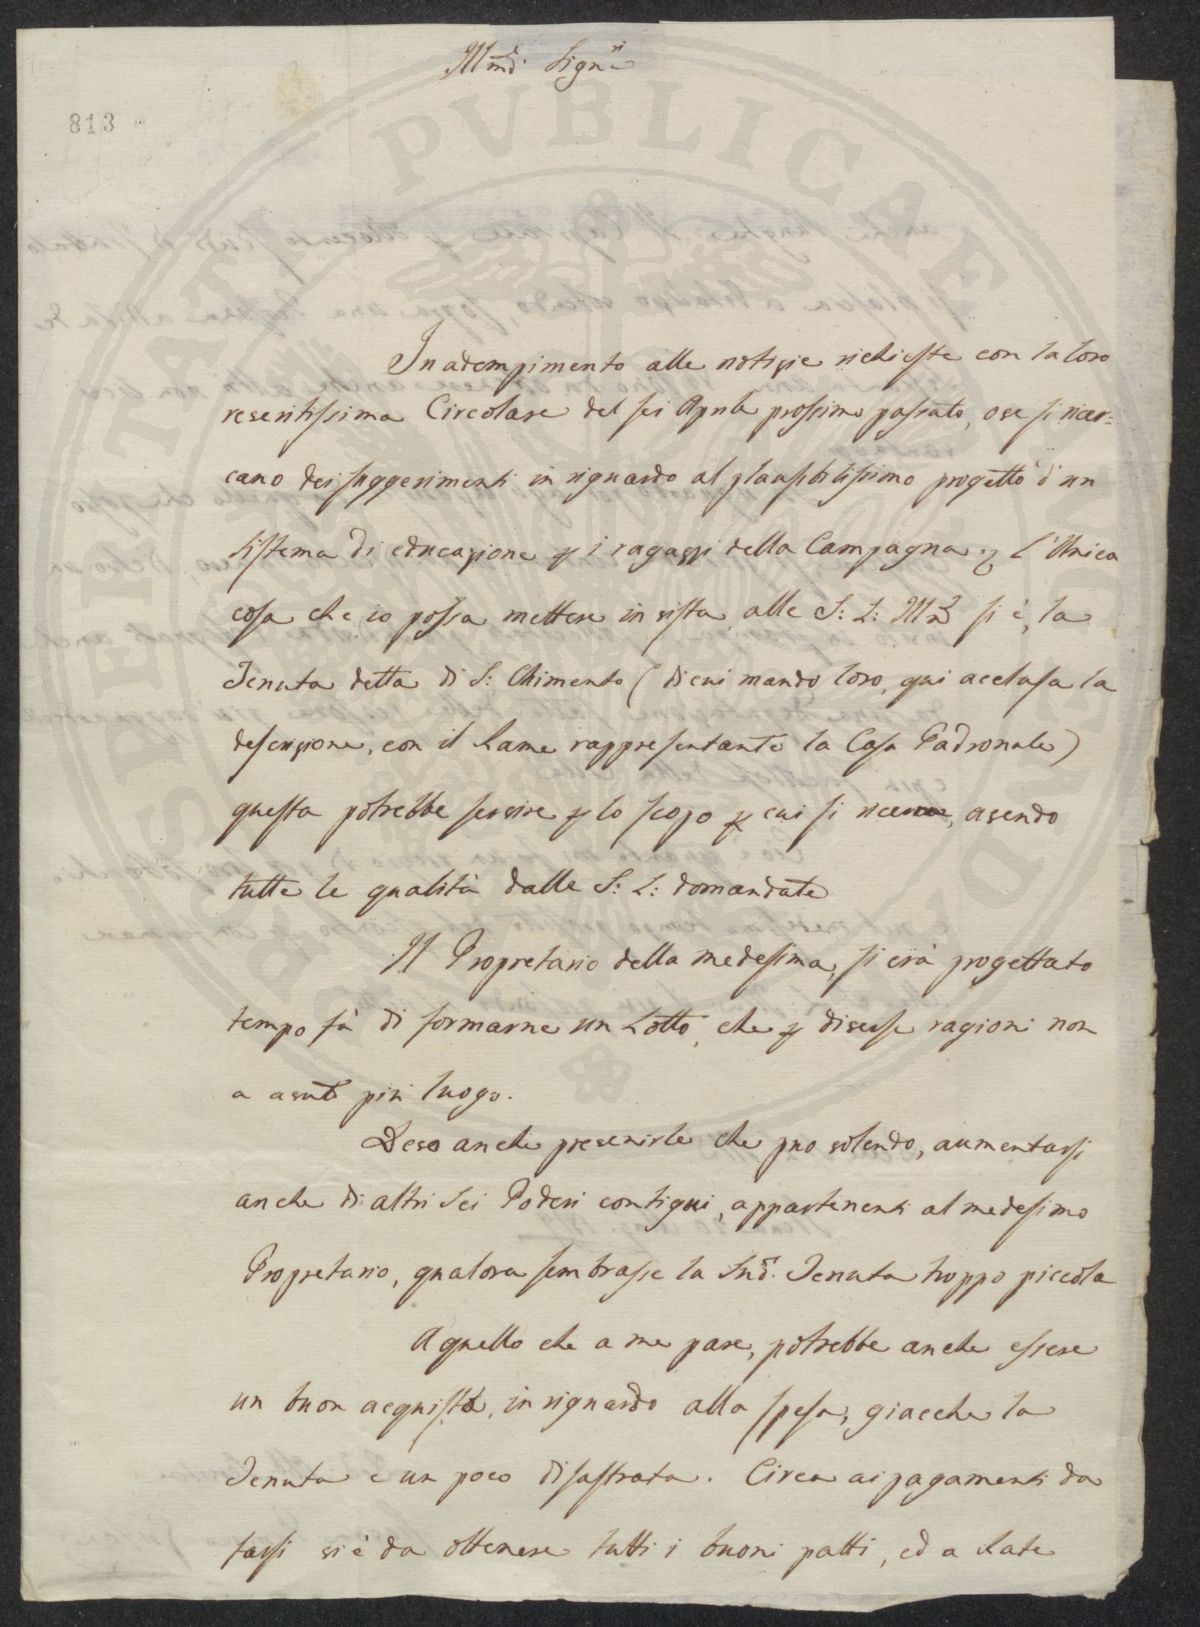 Ill.mi Sign.ri
813
In adempimento alle notizie richieste con la loro
reveritissima Circolare del sei Aprile prossimo passato, ove si ricer=
cano dei suggerimenti in riguardo al plausibilissimo progetto d'un
sistema di educazione p i ragazzi della Campagna. L'Unica
cosa che io possa mettere in vista alle S: L: Ill.me si è, la
Tenuta detta di S: Chimento (di cui mando loro, qui acclusa la
descrizione, con il Rame rappresentante la Casa Padronale)
questa potrebbe servire p lo scopo p cui si ricerca, avendo
tutte le qualità dalle S: L: domandate
Il Propretario della medesima, si era progettato
tempo fà di formarne un Lotto, che p diverse ragioni non
a avuto più luogo.
Devo anche prevenirle che può volendo, aumentarsi
anche di altri Sei Poderi contigui, appartenenti al medesimo
Propretario, qualora sembrasse la Sud.a Tenuta troppo piccola
A quello che a me pare, potrebbe anche essere
un buon acquisto, in riguardo alla spesa, giacche la
Tenuta e un poco disastrata. Circa ai pagamenti da
farsi vi è da ottenere tutti i buoni patti, ed a Rate